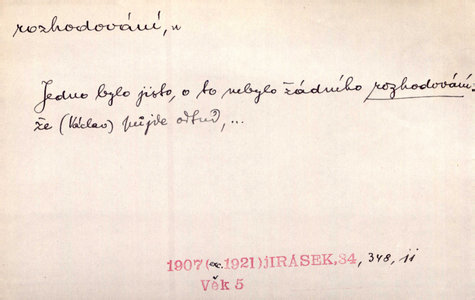 rozhodování, n
Jedno bylo jisto, o to nebylo žádného rozhodování.
že (Václav) půjde odtud, ...
1907 (oc.1921) JIRÁSEK, 34, 348, ji
Věk 5